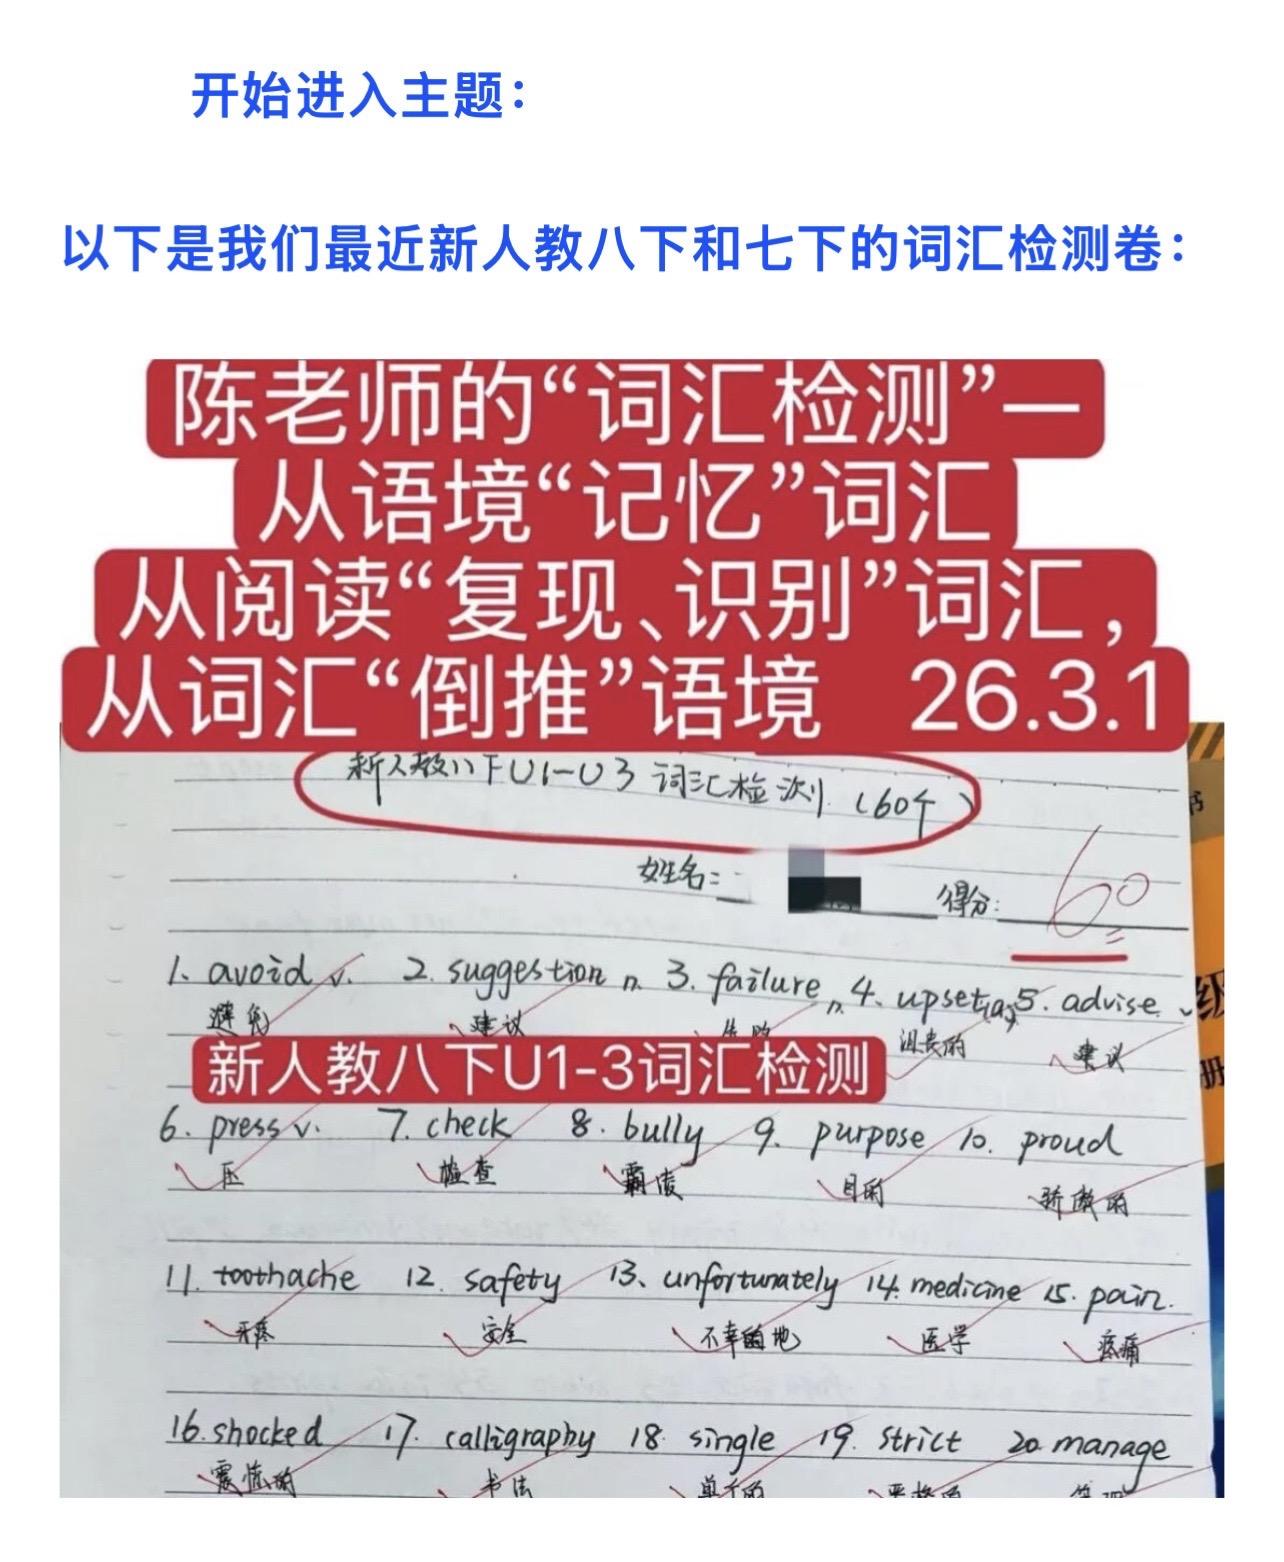 开始进入主题：
以下是我们最近新人教八下和七下的词汇检测卷：
陈老师的“词汇检测”—
从语境“记忆”词汇
从阅读“复现、识别”词汇，
从词汇“倒推”语境 26.3.1
新人教八下U1-U3 词汇检测（60个）
姓名： 得分： 60
1. avoid v. 2. suggestion n. 3. failure n. 4. upset(a) 5. advise v
避免 建议 失败 沮丧的 建议
新人教八下U1-3词汇检测
6. press v. 7. check 8. bully 9. purpose 10. proud
压 检查 霸凌 目的 骄傲的
11. toothache 12. safety 13. unfortunately 14. medicine 15. pain.
牙疼 安全 不幸的地 医学 疼痛
16. shocked 17. calligraphy 18. single 19. strict 20. manage
震惊的 书法 单个的 严格的
书
级
册